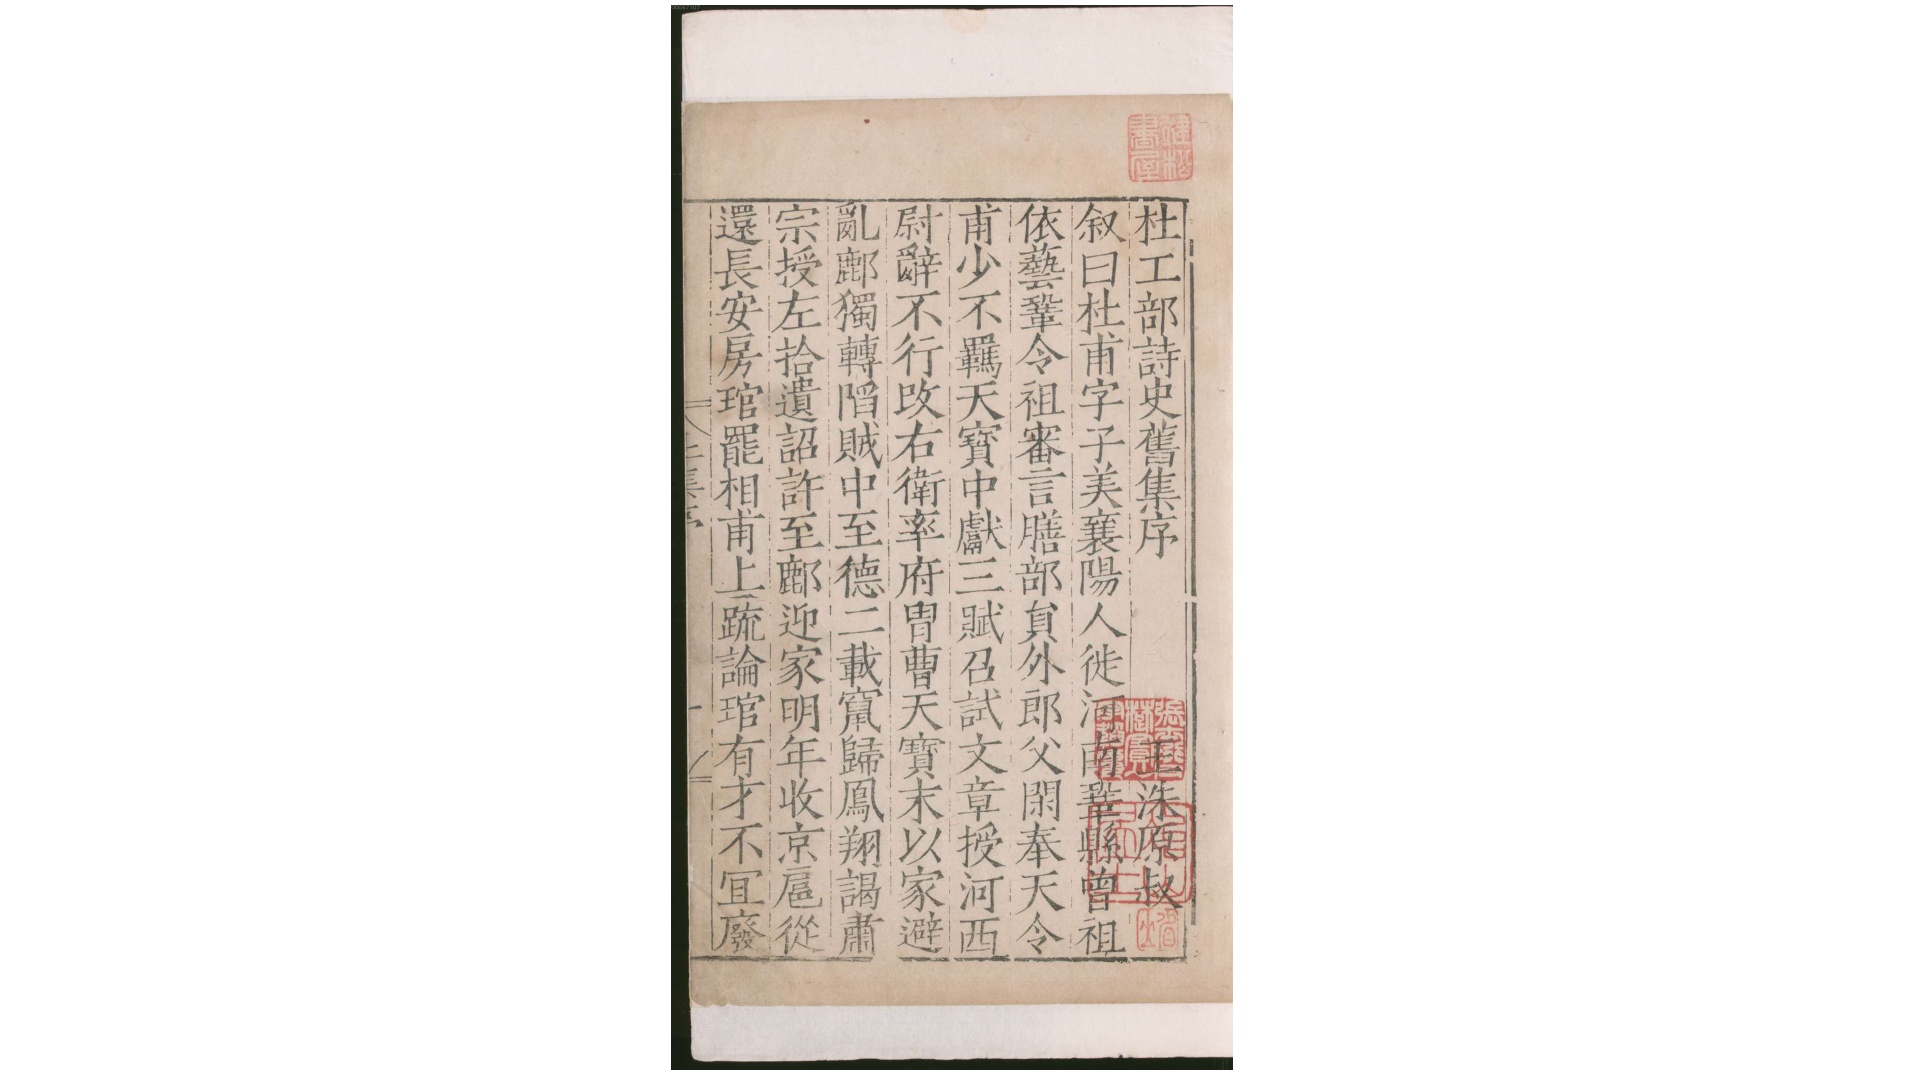 杜工部詩史舊集序
王洙原叔
叙曰杜甫字子美襄陽人徙河南鞏縣曾祖
依藝鞏令祖審言膳部貟外郎父閑奉天令
甫少不羈天寶中獻三賦召試文章授河西
尉辭不行改右衛率府胄曹天寶末以家避
亂鄜獨轉陷賊中至德二載竄歸鳳翔謁肅
宗授左拾遺詔許至鄜迎家明年收京扈從
還長安房琯罷相甫上疏論琯有才不冝廢